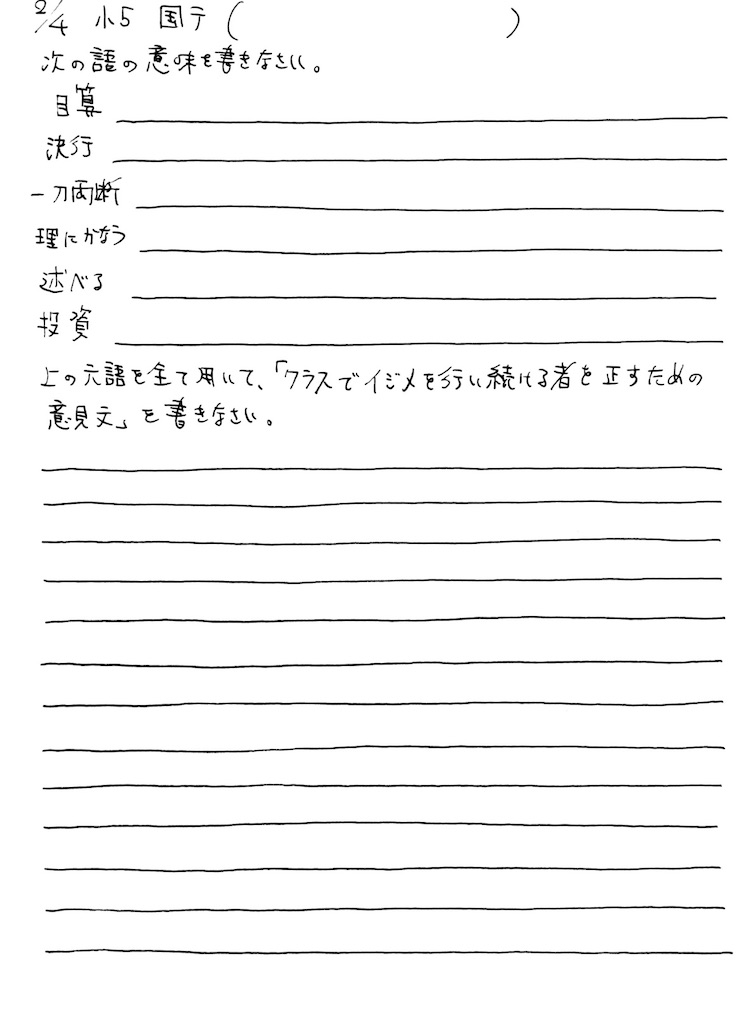 2/4 小5 国テ( )
次の語の意味を書きなさい。
目算
決行
一刀両断
理にかなう
述べる
投資
上の六語を全て用いて、「クラスでイジメを行い続ける者を正すための
意見文」を書きなさい。